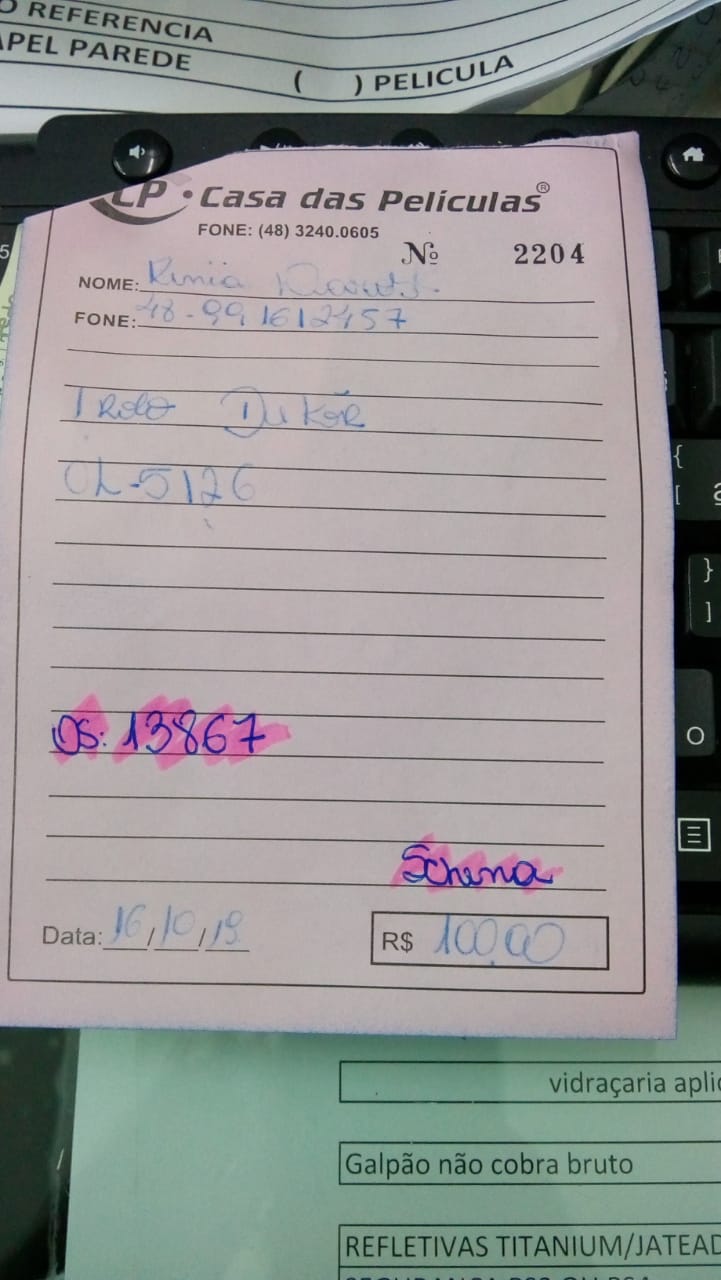 O REFERENCIA
APEL PAREDE ( ) PELICULA
CP • Casa das Películas®
FONE: (48) 3240.0605
Nº 2204
NOME:
FONE: 48-991612457
1 Rolo Dukôr
OL-5126
OS: 13867
Schena
Data: 16/10/19
R$ 100,00
vidraçaria aplic
Galpão não cobra bruto
REFLETIVAS TITANIUM/JATEAD